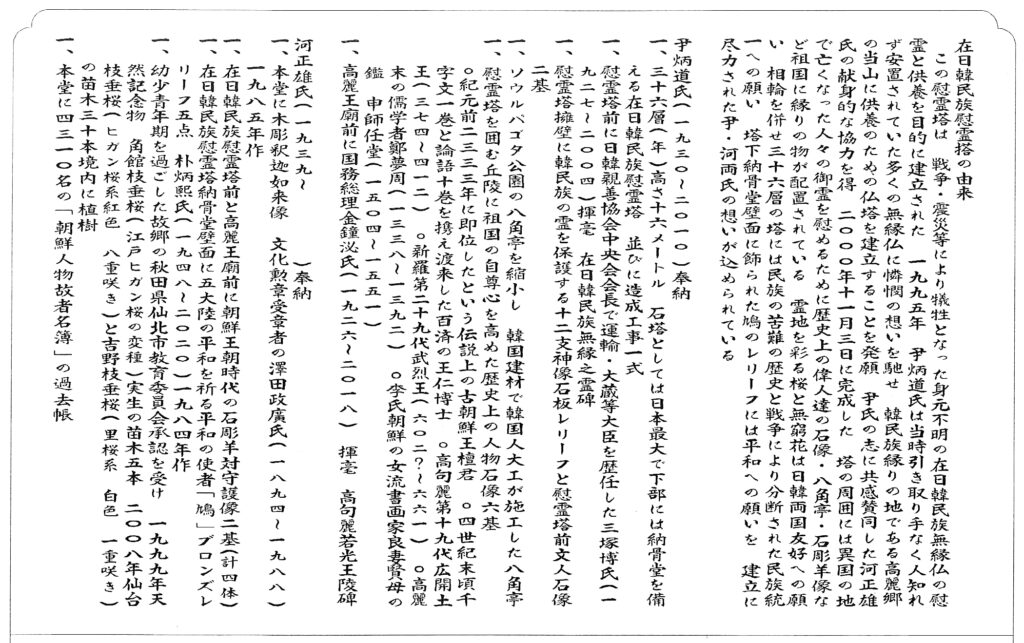 在日韓民族慰霊塔の由来
この慰霊塔は　戦争・震災等により犠牲となった身元不明の在日韓民族無縁仏の慰
霊と供養を目的に建立された　一九九五年　尹炳道氏は当時引き取り手なく人知れ
ず安置されていた多くの無縁仏に憐憫の想いを馳せ　韓民族縁りの地である高麗郷
の当山に供養のための仏塔を建立することを発願　尹氏の志に共感賛同した河正雄
氏の献身的な協力を得　二〇〇〇年十一月三日に完成した　塔の周囲には異国の地
で亡くなった人々の御霊を慰めるために歴史上の偉人達の石像・八角亭・石彫羊像な
ど祖国に縁りの物が配置されている　霊地を彩る桜と無窮花は日韓両国友好への願
い　相輪を併せ三十六層の塔には民族の苦難の歴史と戦争により分断された民族統
一への願い　塔下納骨堂壁面に飾られた鳩のレリーフには平和への願いを　建立に
尽力された尹・河両氏の想いが込められている
尹炳道氏(一九三〇～二〇一〇)奉納
一、三十六層(年)高さ十六メートル　石塔としては日本最大で下部には納骨堂を備
える在日韓民族慰霊塔　並びに造成工事一式
一、慰霊塔前に日韓親善協会中央会会長で運輸・大蔵等大臣を歴任した三塚博氏(一
九二七～二〇〇四)揮毫　在日韓民族無縁之霊碑
一、慰霊塔擁壁に韓民族の霊を保護する十二支神像石板レリーフと慰霊塔前文人石像
二基
一、ソウルパゴタ公園の八角亭を縮小し　韓国建材で韓国人大工が施工した八角亭
一、慰霊塔を囲む丘陵に祖国の自尊心を高めた歴史上の人物石像六基
○紀元前二三三三年に即位したという伝説上の古朝鮮王檀君　○四世紀末頃千
字文一巻と論語十巻を携え渡来した百済の王仁博士　○高句麗第十九代広開土
王(三七四～四一二)　○新羅第二十九代武烈王(六〇二?～六六一)　○高麗
末の儒学者鄭夢周(一三三八～一三九二)　○李氏朝鮮の女流書画家良妻賢母の
鑑　申師任堂(一五〇四～一五五一)
一、高麗王廟前に国務総理金鍾泌氏(一九二六～二〇一八)　揮毫　高句麗若光王陵碑
河正雄氏(一九三九～　　　　)奉納
一、本堂に木彫釈迦如来像　文化勲章受章者の澤田政廣氏(一八九四～一九八八)
一九八五年作
一、在日韓民族慰霊塔前と高麗王廟前に朝鮮王朝時代の石彫羊対守護像二基(計四体)
一、在日韓民族慰霊塔納骨堂壁面に五大陸の平和を祈る平和の使者「鳩」ブロンズレ
リーフ五点　朴炳熙氏(一九四八～二〇二〇)一九八四年作
一、幼少青年期を過ごした故郷の秋田県仙北市教育委員会承認を受け　一九九九年天
然記念物　角館枝垂桜(江戸ヒガン桜の変種)実生の苗木五本　二〇〇八年仙台
枝垂桜(ヒガン桜系紅色　八重咲き)と吉野枝垂桜(里桜系　白色　一重咲き)
の苗木三十本境内に植樹
一、本堂に四三一〇名の「朝鮮人物故者名簿」の過去帳